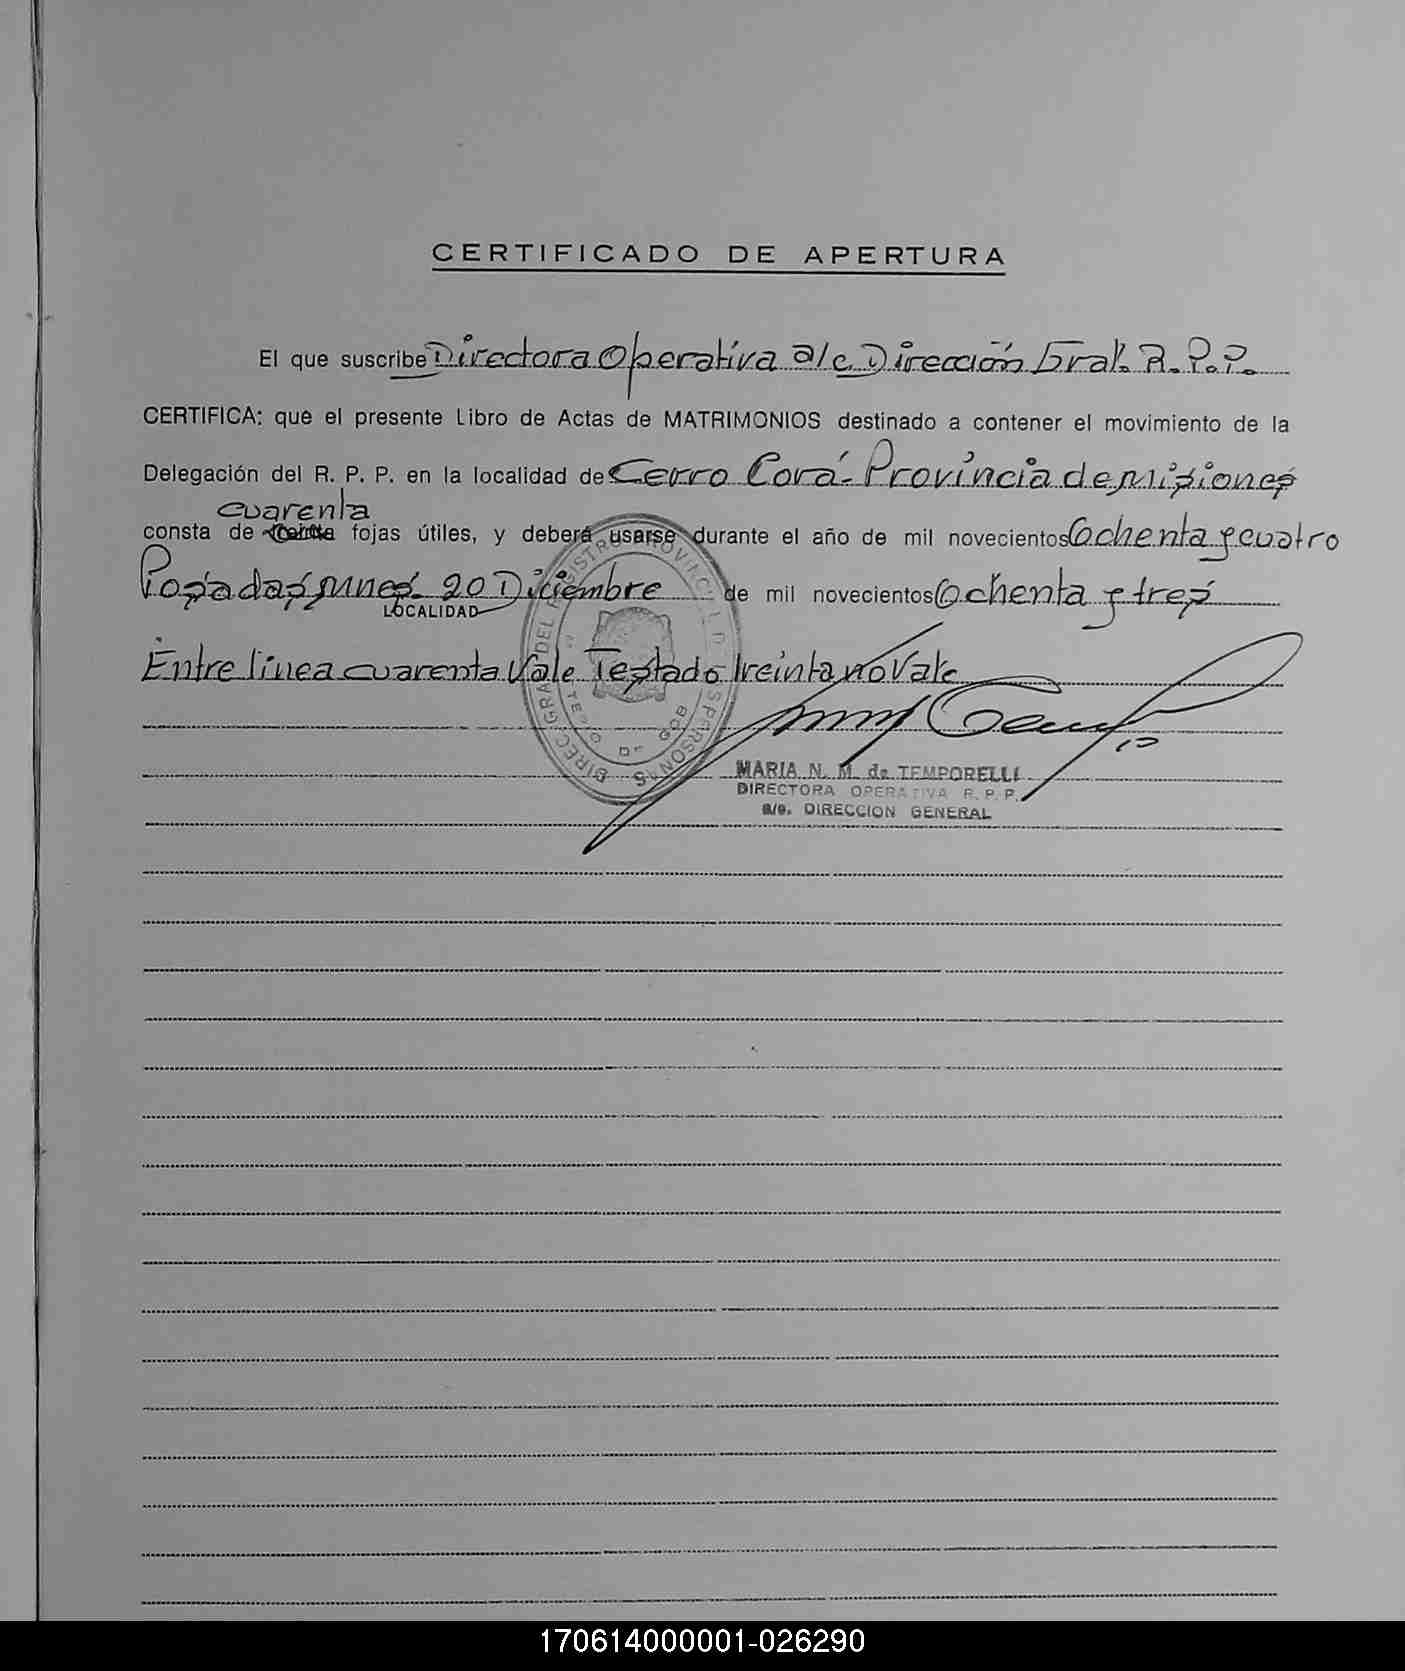 CERTIFICADO DE APERTURA
El que suscribe Directora Operativa a/c. Dirección Gral. R. P. P.
CERTIFICA: que el presente Libro de Actas de MATRIMONIOS destinado a contener el movimiento de la
Delegación del R. P. P. en la localidad de Cerro Corá - Provincia de Misiones
cuarenta
consta de treinta fojas útiles, y deberá usarse durante el año de mil novecientos Ochenta y cuatro
Posadas, Mnes. 20 Diciembre de mil novecientos Ochenta y tres
LOCALIDAD
Entre linea cuarenta Vale Testado treinta no Vale
MARIA N. M. de TEMPORELLI
DIRECTORA OPERATIVA R. P. P.
a/c. DIRECCION GENERAL
170614000001-026290